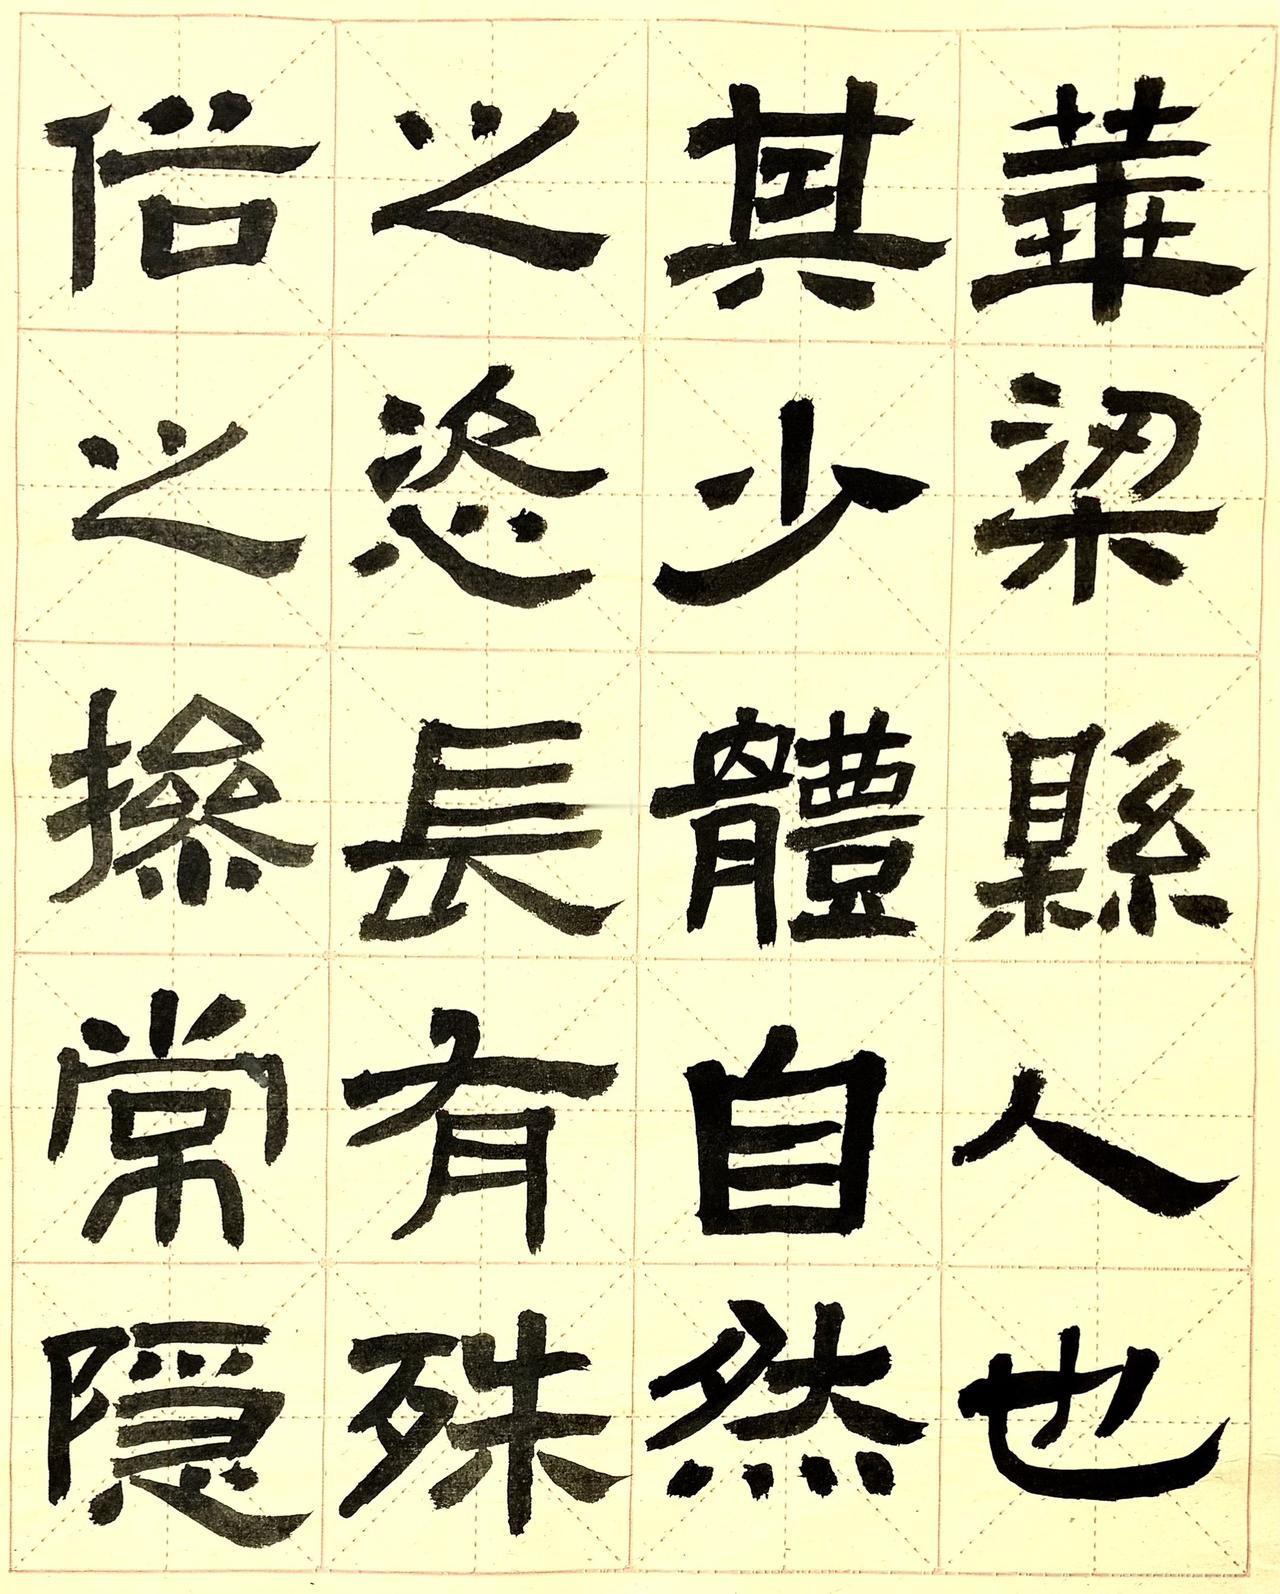 華梁縣人也
其少體自然
之恣長有殊
俗之摻常隱